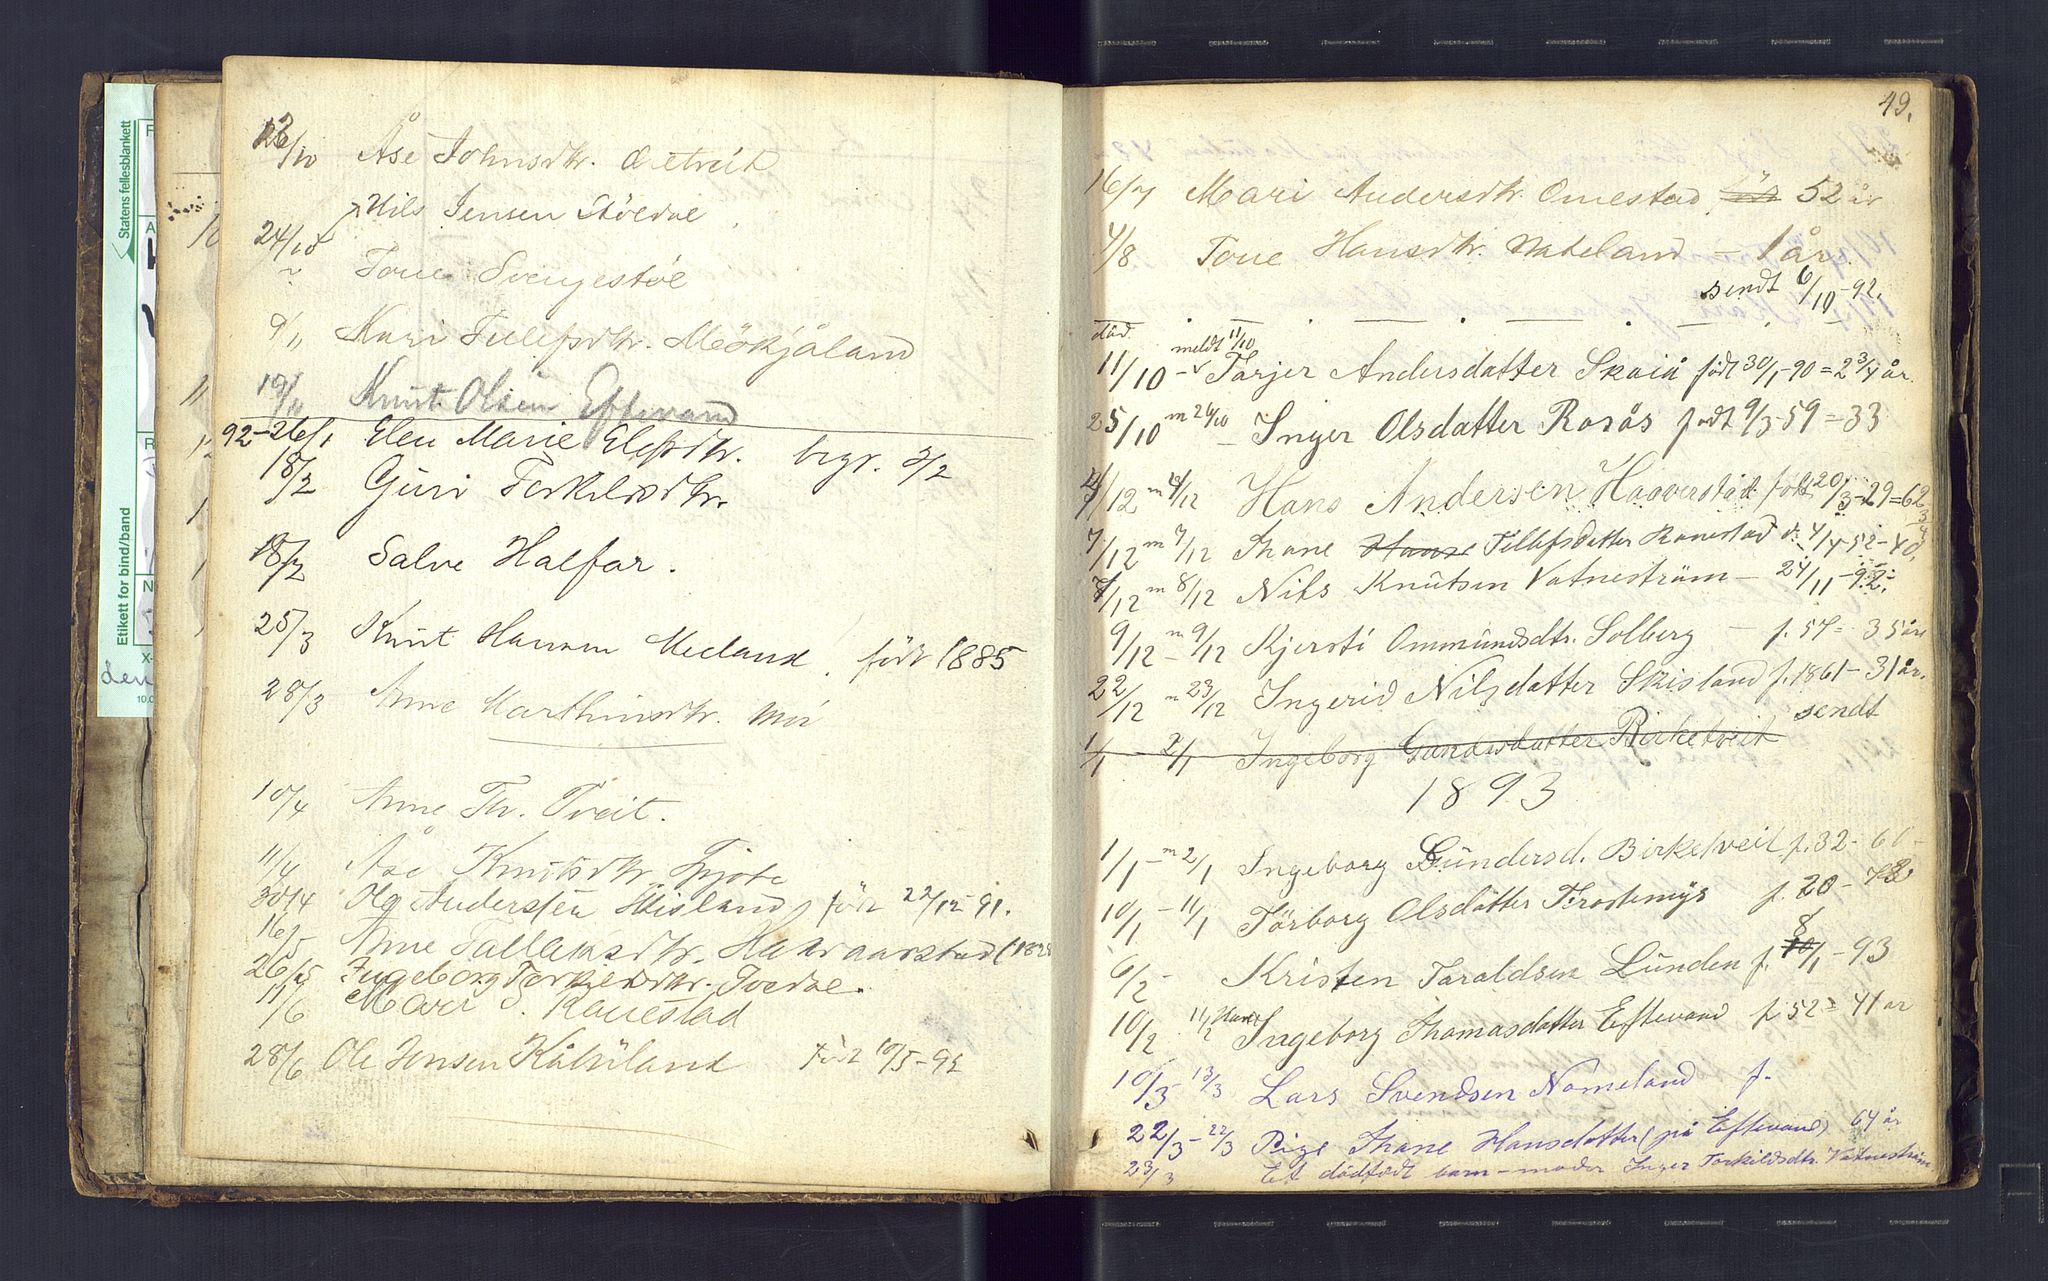 26/10 Åse Johnsdtr.
Nils Jensen Stöldal
24/10
Tone Svengestöl
9/11 Kari Tellefsdtr. Mökjåland
19/11 Knut Olsen Eftevand
92-26/1 Elen Marie Elefsdtr. begr. 3/2
18/2 Guri Terkelsdtr.
18/2 Salve Halfar.
25/3 Knut Hansen Meeland. født 1885
28/3 Anne Marthinsdtr. Moi
10/4 Anne Th. Tveit.
11/4 Åse Knutsdtr
30/4 Ola Andersen född 22/12-91.
16/5 Anne Tallaksdtr. Haavaarstad (18
26/5 Ingeborg Terkelsdtr.
11/6 Mari S. Ranestad
28/6 Ole Jensen född 10/5-92
Statens fellesblankett
Etikett for bind/bånd
49.
16/7 Mari Andersdtr. Omestad 52 år
4/8 Tone Hansdtr. Nateland - 1 år.
sendt 6/10-92.
död
meldt 11/10
11/10 - Tarjer Andersdatter Skaiå född 30/1-90 = 2 3/4 år.
25/10 m 26/10 - Inger Olsdatter Rosås född 9/3-59 = 33
4/12 m 4/12 Hans Andersen Haaverstad född 20/3-29 = 62 3/4
7/12 m 7/12 Thane Hans Tellefsdatter Ranestad d. 4/4-52-40.
7/12 m 8/12 Nils Knutsen Vatneström - 24/11-92.
9/12 - m 9/12 Kjersti Ommundsdtr. Solberg - f. 57 = 35 år
22/12 m 23/12 Ingerid Nilsdatter Skisland f. 1861 - 31 år.
sendt
1/1 - 2/1 Ingeborg Gundersdatter Birketveit
1893
1/1 - m 2/1 Ingeborg Gundersd. Birketveit f. 32 - 60 -
10/1 - 11/1 Törborg Olsdatter Frostemyr f. 20 - 72
6/2 - Kristen Taraldsen Lunden f. 8/1-93
10/2 11/2 Ingeborg Thomasdatter Eftevand f. 52 = 41 år
10/3 13/3 Lars Svendsen Nomeland f.
22/3 - 22/3 Pige Thane Hansdatter (på Eftevand) 64 år
23/3 Et dödfödt barn - moder Inger Torkildsdtr. Vatneström